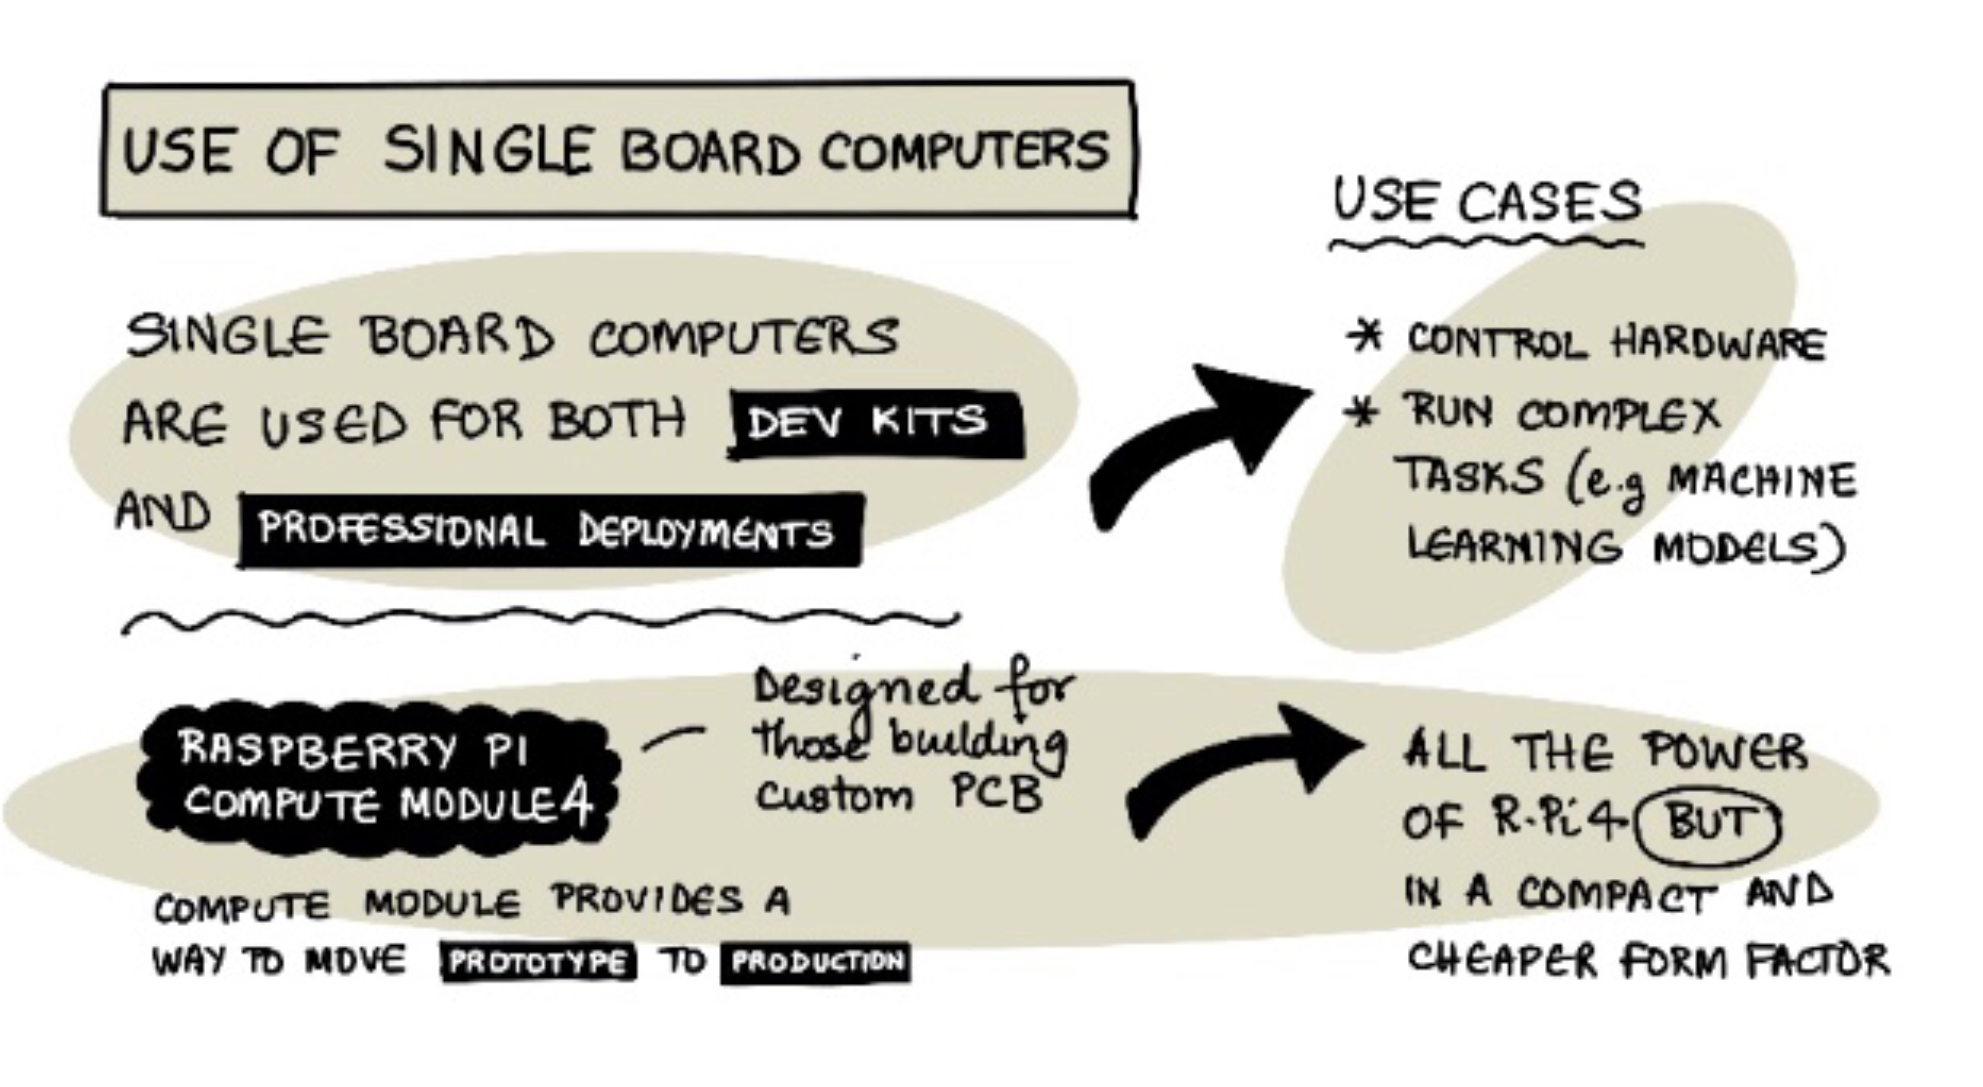 USE OF SINGLE BOARD COMPUTERS
SINGLE BOARD COMPUTERS
ARE USED FOR BOTH DEV KITS
AND PROFESSIONAL DEPLOYMENTS
USE CASES
* CONTROL HARDWARE
* RUN COMPLEX
TASKS (e.g MACHINE
LEARNING MODELS)
RASPBERRY PI
COMPUTE MODULE 4
Designed for
those building
custom PCB
COMPUTE MODULE PROVIDES A
WAY TO MOVE PROTOTYPE TO PRODUCTION
ALL THE POWER
OF R.Pi 4 BUT
IN A COMPACT AND
CHEAPER FORM FACTOR